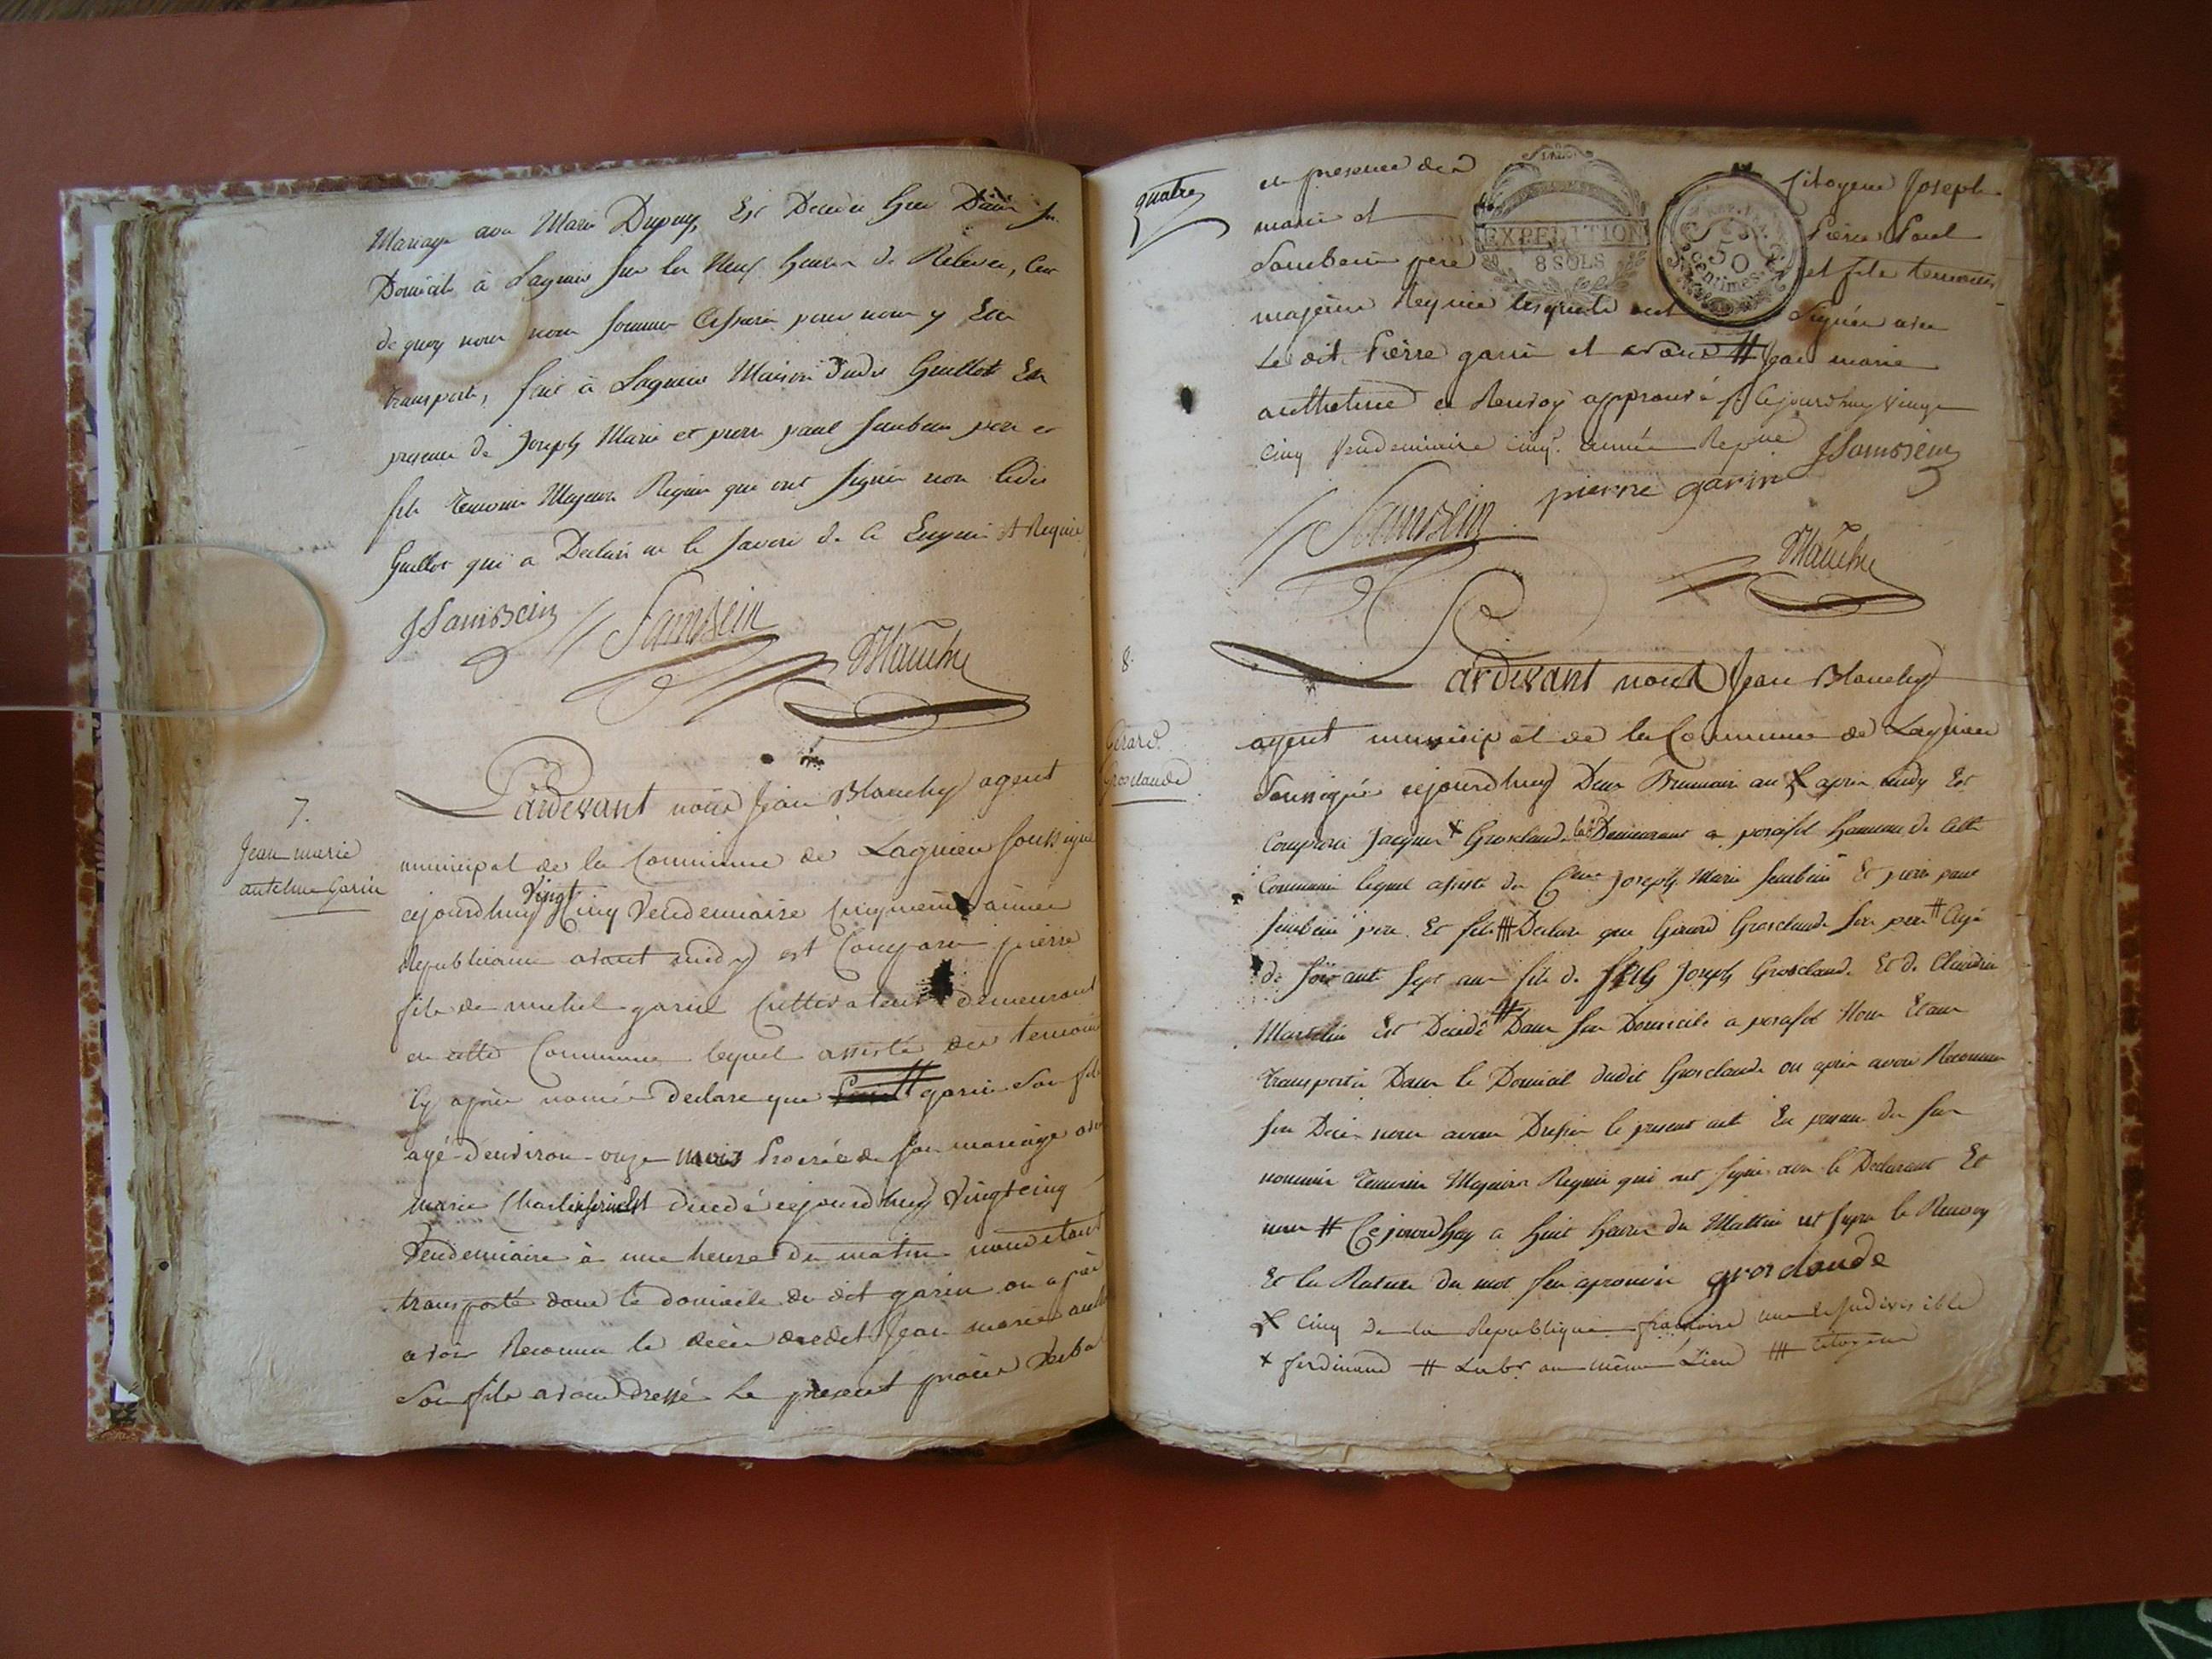 Mariage avec Marie Dupuy, Est Decedé Hier Dans son
Domicile à Lagnieu sur les Neuf heures de Relevée,
de quoy nous nous sommes assuré pour nous y Etre
transporté, fait à Lagnieu Maison dudit Guillot En
presence de Joseph Marie et pierre paul père et
fils temoins Majeurs Requis qui ont signés non ledit
Guillot qui a Declaré ne le savoir de ce Enquis et Requis
7.
Jean marie
antelme Garin
Pardevant nous Jean Blanchy agent
municipal de la Commune de Lagnieu soussigné
cejourdhuy vingt Cinq Vendemiaire Cinquieme année
Republicaine avant midy est Comparu pierre
fils de michel garin Cultivateur demeurant
en cette Commune lequel assisté des temoins
Cy après nommés declare que garin Son fils
agé d'environ onze mois Procréé de son mariage avec
marie est decedé cejourdhuy vingtcinq
Vendemiaire à une heure du matin nous étant
transporté dans le domicile du dit garin ou après
avoir Reconnu le décès dudit Jean marie
Son fils avons dressé Le présent procès verbal
quatre
en presence des citoyens Joseph
marie et Pierre Paul
père et fils temoins
EXPEDITION
8 SOLS
50
centimes
majeurs Requis lesquels ont Signés avec
Le dit Pierre garin et avons # Jean marie
anthelme le Renvoy approuvé cejourdhuy vingt
cinq Vendemiaire cinq. année Repne
pierre garin
8.
Gerard
Grosclaude
Pardevant nous Jean Blanchy
agent municipal de la Commune de Lagnieu
Soussigné cejourdhuy Deux Brumaire an après midy Est
Comparu Jacques + Grosclaude Demeurant a posafol hameau de Cette
Commune lequel assisté des Joseph Marie et pierre paul
père Et fils Declare que Gerard Grosclaude son père # Agé
de soixante Sept ans fils de Joseph Grosclaude Et de Claudine
Est Decédé # Dans son Domicile a posafol Nous Etant
transportés Dans le Domicile dudit Grosclaude ou après avoir Reconnu
son Decès nous avons Dressé le present acte En presence des sus
nommés Temoins Majeurs Requis qui ont signé avec le Declarant Et
nous # Cejourdhuy a huit heures du Mattin ut supra le Renvoy
Et la Rature du mot feu aprouvés grosclaude
cinq De la Republique francoise une et Indivisible
+ ferdinand # Labr au même Lieu citoyens